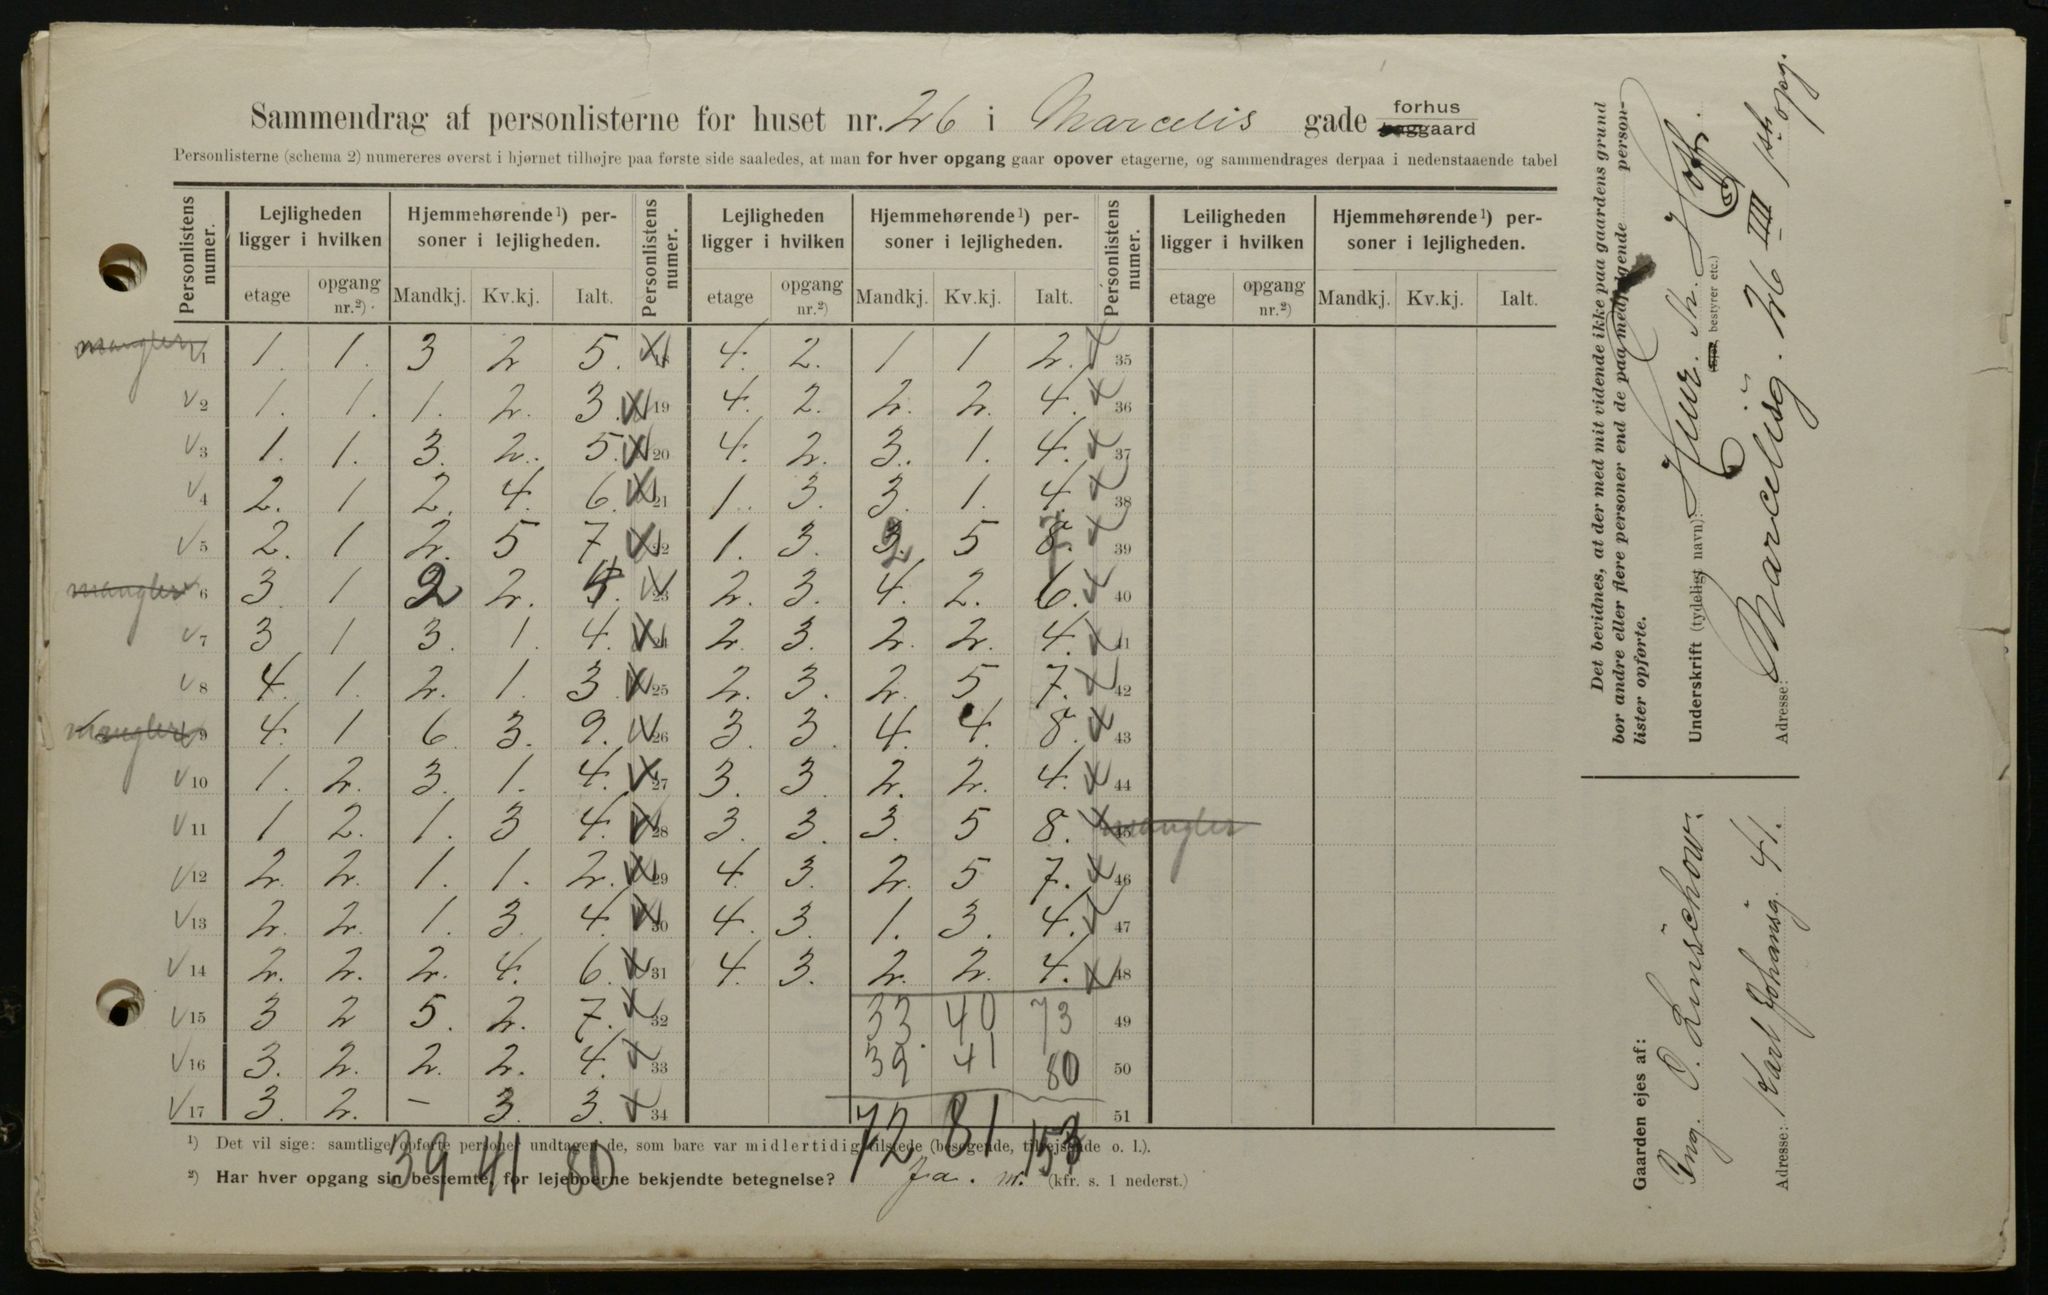 Sammendrag af personlisterne for huset nr. 26 i Marcelis gade forhus baggaard
Personlisterne (schema 2) numereres øverst i hjørnet tilhøjre paa første side saaledes, at man for hver opgang gaar opover etagerne, og sammendrages derpaa i nedenstaaende tabel
Personlistens numer. Lejligheden ligger i hvilken Hjemmehørende¹) personer i lejligheden. Personlistens numer. Lejligheden ligger i hvilken Hjemmehørende¹) personer i lejligheden. Personlistens numer. Leiligheden ligger i hvilken Hjemmehørende¹) personer i lejligheden.
etage opgang nr.²) Mandkj. Kv.kj. Ialt. etage opgang nr.²) Mandkj. Kv.kj. Ialt. etage opgang nr.²) Mandkj. Kv.kj. Ialt.
mangler 1 1. 1. 3 2 5. 18 4. 2. 1 1 2. 35
2 1. 1. 1. 2. 3. 19 4. 2. 2. 2. 4. 36
3 1. 1. 3. 2. 5. 20 4. 2. 3. 1. 4. 37
4 2. 1 2. 4. 6. 21 1. 3. 3. 1. 4. 38
5 2. 1 2. 5 7. 22 1. 3. 2 5 7 39
mangler 6 3. 1 2 2. 4. 23 2. 3. 4. 2. 6. 40
7 3 1 3. 1. 4. 24 2. 3. 2. 2. 4. 41
8 4. 1. 2. 1. 3. 25 2. 3. 2. 5 7. 42
mangler 9 4. 1 6. 3. 9. 26 3. 3. 4. 4. 8. 43
10 1. 2. 3. 1. 4. 27 3. 3. 2. 2. 4. 44
11 1 2. 1. 3 4. 28 3. 3. 3. 5 8. 45 mangler
12 2. 2. 1. 1. 2. 29 4. 3. 2. 5 7. 46
13 2. 2. 1. 3. 4. 30 4. 3. 1. 3. 4. 47
14 2. 2. 2. 4. 6. 31 4. 3. 2. 2. 4. 48
15 3 2 5. 2. 7. 32 33 40 73 49
16 3. 2. 2. 2. 4. 33 39 41 80 50
17 3. 2. – 3. 3. 34 51
72 81 153
¹) Det vil sige: samtlige opførte personer undtagen de, som bare var midlertidig tilstede (besøgende, tilrejsende o. l.).
39 41 80
²) Har hver opgang sin bestemte, for lejeboerne bekjendte betegnelse? Ja. (kfr. s. 1 nederst.)
Det bevidnes, at der med mit vidende ikke paa gaardens grund
bor andre eller flere personer end de paa medfølgende personlister opførte.
Underskrift (tydeligt navn): Th. Hoff.
bestyrer etc.)
Adresse: Marcelisg. 26 IIII 1ste opg.
Gaarden ejes af:
Ing. O.
Adresse: Karl Johansg. 41.